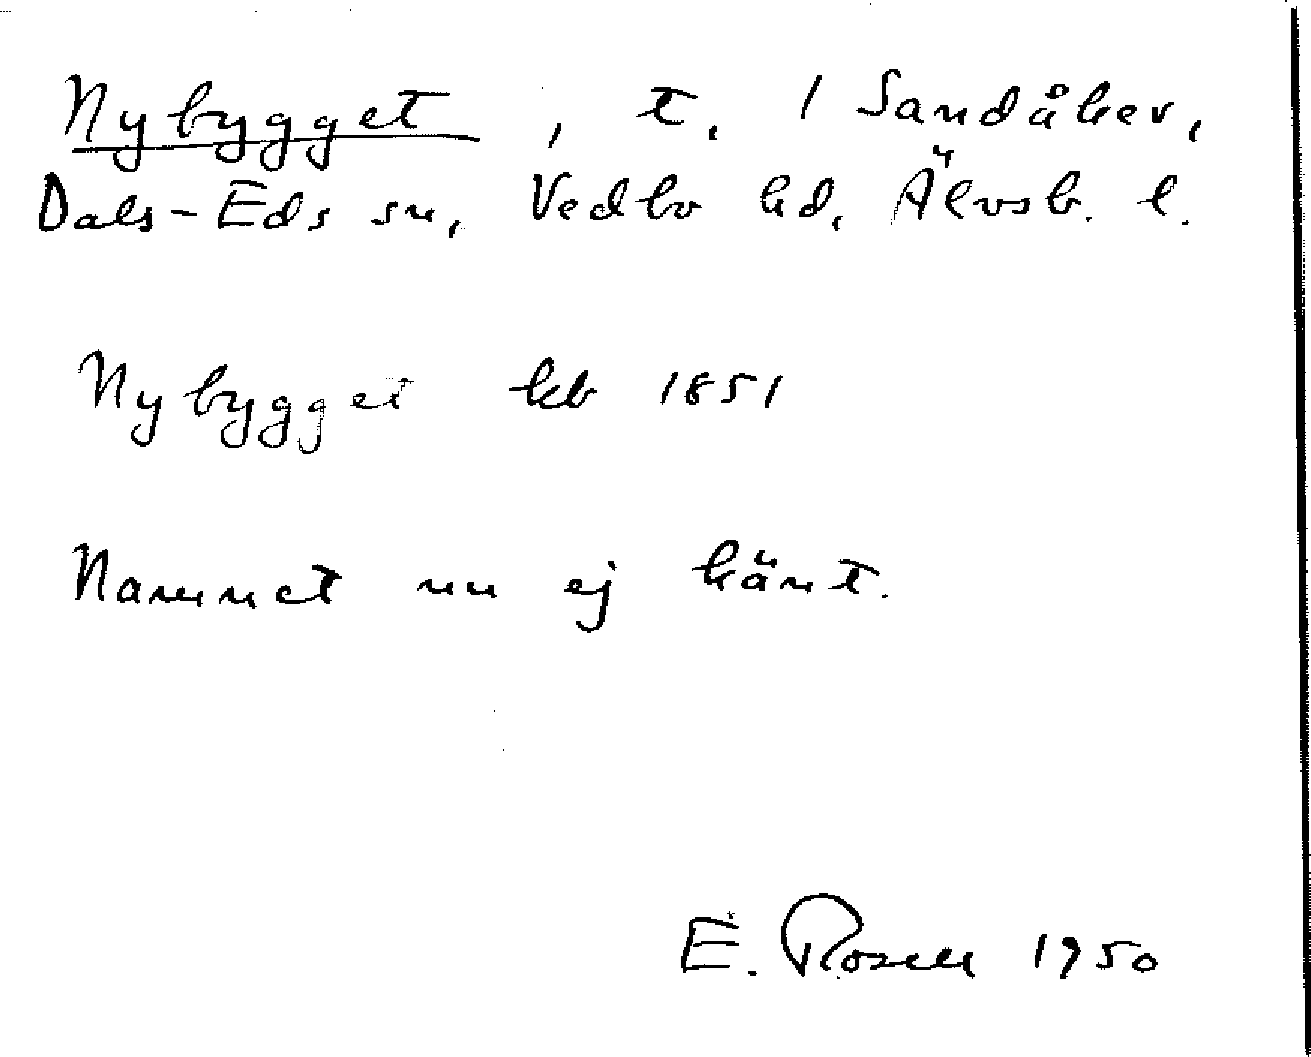 Nybygget, t. / Sandåker,
Dals-Eds sn, Vedbo hd, Älvsb. l.
Nybygget kb 1851
Namnet nu ej känt.
E. Rosell 1950